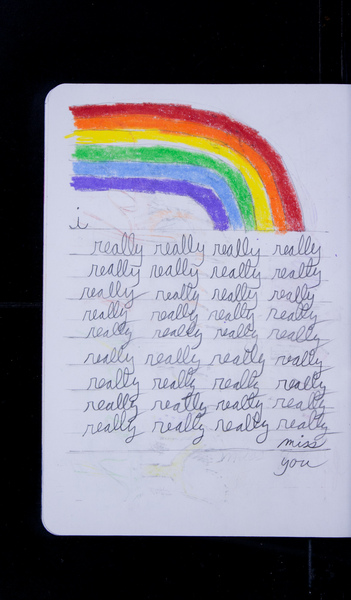 i
really really really really
really really really really
really really really really
really really really really
really really really really
really really really really
really really really really
really really really really
really really really really
miss
you